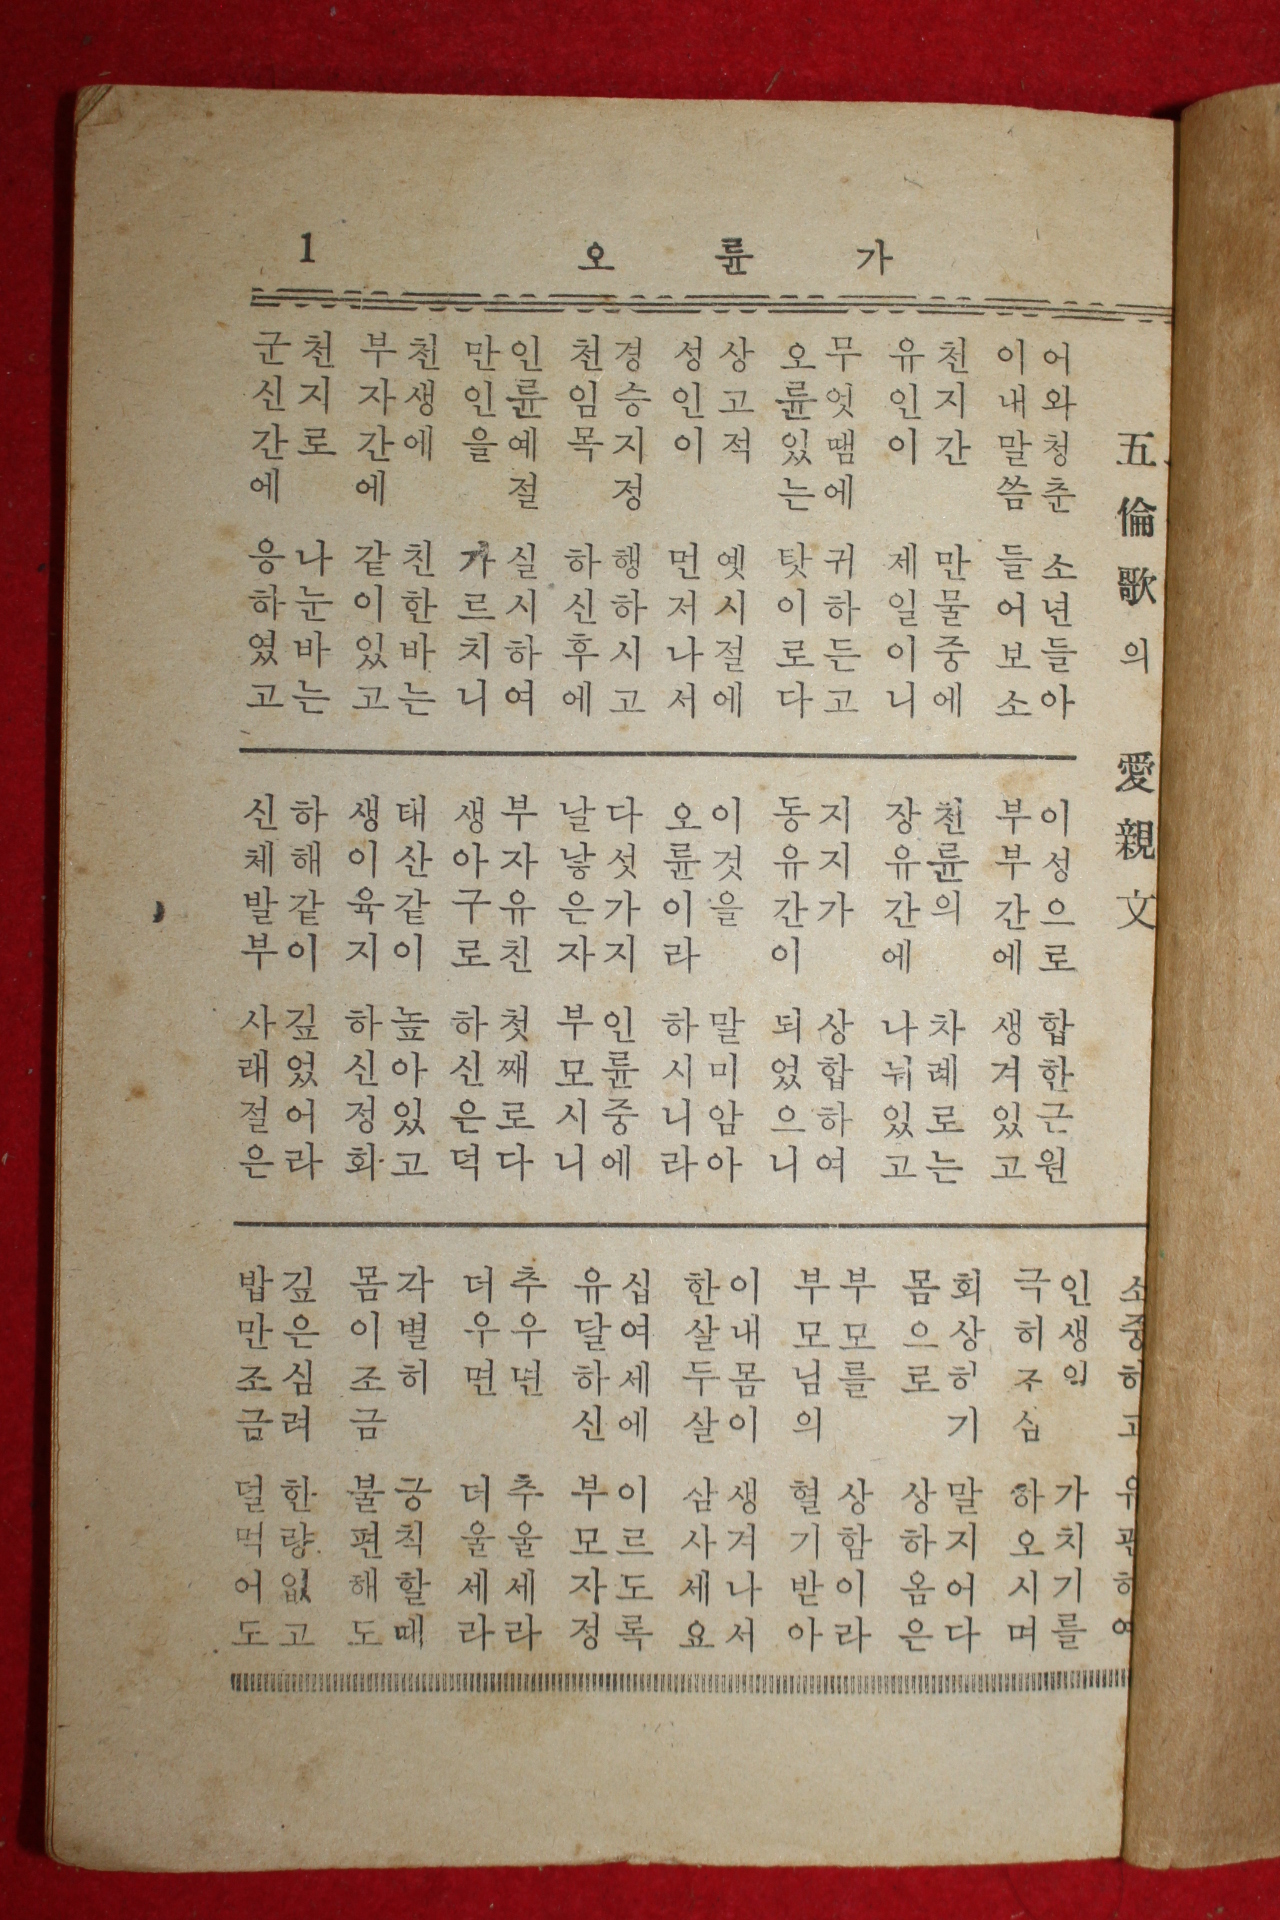 오륜가 1
五倫歌의 愛親文
어와청춘 소년들아
이내말씀 들어보소
천지간 만물중에
유인이 제일이니
무엇땜에 귀하든고
오륜있는 탓이로다
상고적 옛시절에
성인이 먼저나서
경승지정 행하시고
천임목 하신후에
인륜예절 실시하여
만인을 가르치니
천생에 친한바는
부자간에 같이있고
천지로 나눈바는
군신간에 응하였고
이성으로 합한근원
부부간에 생겨있고
천륜의 차례로는
장유간에 나뉘있고
지지가 상합하여
동유간이 되었으니
이것을 말미암아
오륜이라 하시니라
다섯가지 인륜중에
날낳은자 부모시니
부자유친 첫째로다
생아구로 하신은덕
태산같이 높아있고
생이육지 하신정화
하해같이 깊었어라
신체발부 사래절은
소중하고
인생의 가치기를
극히조심 하오시며
회상히기 말지어다
몸으로 상하옴은
부모를 상함이라
부모님의 혈기받아
이내몸이 생겨나서
한살두살 삼사세요
십여세에 이르도록
유달하신 부모자정
추우면 추울세라
더우면 더울세라
각별히 긍칙할때
몸이조금 불편해도
깊은심려 한량없고
밥만조금 덜먹어도